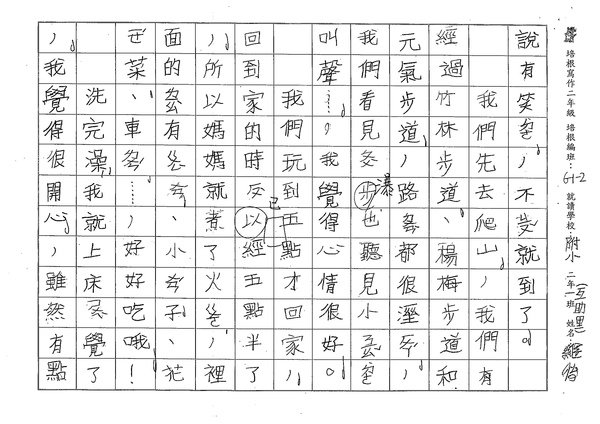 培根寫作二年級 培根編班：G1-2 就讀學校：附小 二年一班（互助里） 姓名：
說有笑，不就到了。
我們先去爬山，我們有
經過竹林步道、楊梅步道和
元氣步道，路都很溼，
我們看見步瀑也聽見小
叫聲……，我覺得心情很好。
我們玩到五點才回家，
回到家的時以已經五點半了
，所以媽媽就煮了火，裡
面的有、小子、花
菜、車、好好吃哦！
洗完澡我就上床覺了
，我覺得很開心，雖然有點